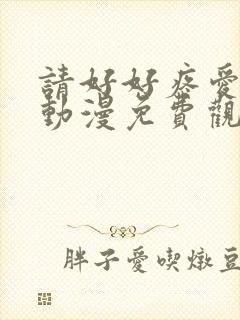 請好好疼愛
動漫免費觀
胖子愛喫燉豆